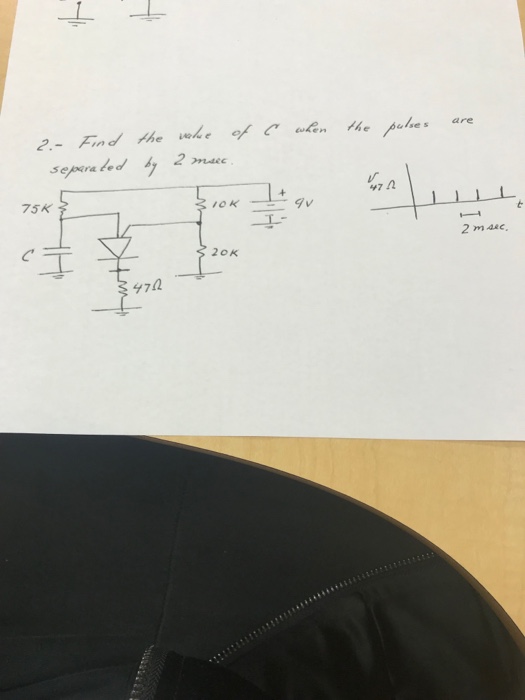 2.- Find the value of C when the pulses are
separated by 2 msec.
75K
10K
+
9V
-
V 47Ω
t
2 msec.
C
20K
47Ω